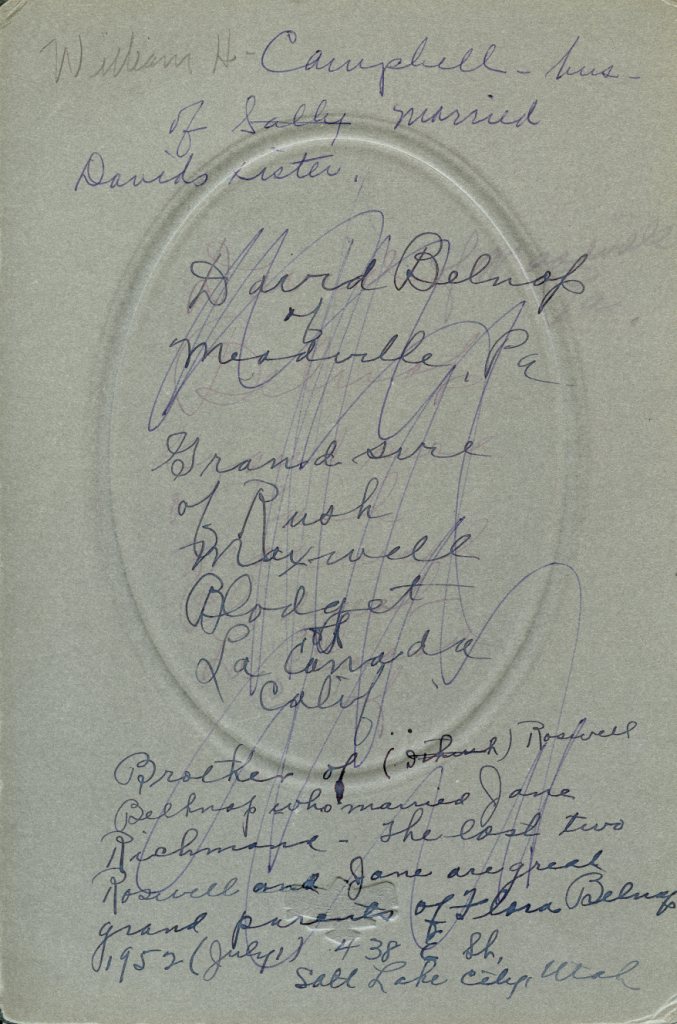 William H - Campbell - hus -
of Sally married
Davids sister.
David Belnap
of
Meadville, Pa
Grand sire
of Rush
Maxwell
Blodget
La Canada
Calif
Brother of (I think) Roswell
Belknap who married Jane
Richmond - The last two
Roswell and Jane are great
grand parents of Flora Belnap
1952 (July 1) 438 E Sh,
Salt Lake City, Utah